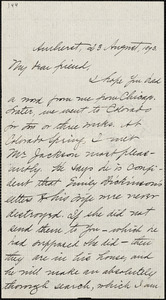 Amherst, 23 August, 1893
My dear friend,
I hope you had
a nod from me from Chicago.
Later, we went to Colorado
for two or three weeks. At
Colorado Springs I met
Mr. Jackson most pleas-
antly. He says he is confi-
dent that Emily Dickinson's
letters to his wife were never
destroyed. If she did not
send them to you – which he
had supposed she did – then
they are in his house, and
he will make an absolutely
thorough search, which I am